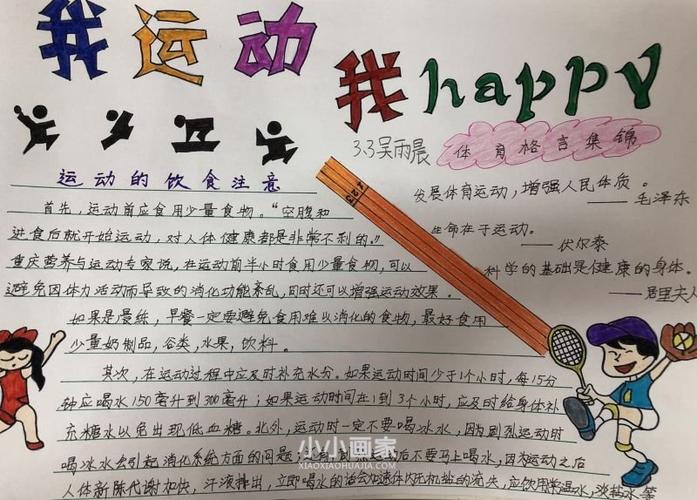 我运动
我happy
3.3吴雨晨
体育格言集锦
运动的饮食注意
发展体育运动,增强人民体质。
——毛泽东
生命在于运动。
——伏尔泰
科学的基础是健康的身体。
——居里夫人
首先,运动前应食用少量食物。“空腹和
进食后就开始运动,对人体健康都是非常不利的。”
重庆营养与运动专家说,在运动前半小时食用少量食物,可以
避免因体力活动而导致的消化功能紊乱,同时还可以增强运动效果。
如果是晨练,早餐一定要避免食用难以消化的食物,最好食用
少量奶制品,谷类,水果,饮料。
其次,在运动过程中应及时补充水分。如果运动时间少于1个小时,每15分
钟应喝水150毫升到300毫升;如果运动时间在1到3个小时,应及时给身体补
充糖水以免出现低血糖。此外,运动时一定不要喝冰水,因为剧烈运动时
喝冰水会引起消化系统方面的问题;运动后不要马上喝水,因为运动之后
人体新陈代谢加快,汗液排出,立即喝水的话会加速体内无机盐的流失,应饮用常温水,淡盐水等
小小画家
XIAOXIAOHUAJIA.COM